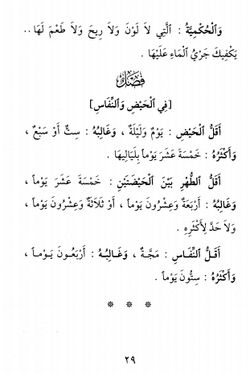 وَٱلْحُكْمِيَّةُ : ٱلَّتِي لاَ لَوْنَ وَلاَ رِيحَ وَلاَ طَعْمَ لَهَا ..
يَكْفِيكَ جَرْيُ ٱلْمَاءِ عَلَيْهَا .
فَصْلٌ
[فِي ٱلْحَيْضِ وَٱلنِّفَاسِ]
أَقَلُّ ٱلْحَيْضِ : يَوْمٌ وَلَيْلَةٌ ، وَغَالِبُهُ : سِتٌّ أَوْ سَبْعٌ ،
وَأَكْثَرُهُ : خَمْسَةَ عَشَرَ يَوْماً بِلَيَالِيهَا .
أَقَلُّ ٱلطُّهْرِ بَيْنَ ٱلْحَيْضَتَيْنِ : خَمْسَةَ عَشَرَ يَوْماً ،
وَغَالِبُهُ : أَرْبَعَةٌ وَعِشْرُونَ يَوْماً ، أَوْ ثَلاَثَةٌ وَعِشْرُونَ يَوْماً ،
وَلاَ حَدَّ لِأَكْثَرِهِ .
أَقَلُّ ٱلنِّفَاسِ : مَجَّةٌ ، وَغَالِبُهُ : أَرْبَعُونَ يَوْماً ،
وَأَكْثَرُهُ : سِتُّونَ يَوْماً .
* * *
٢٩